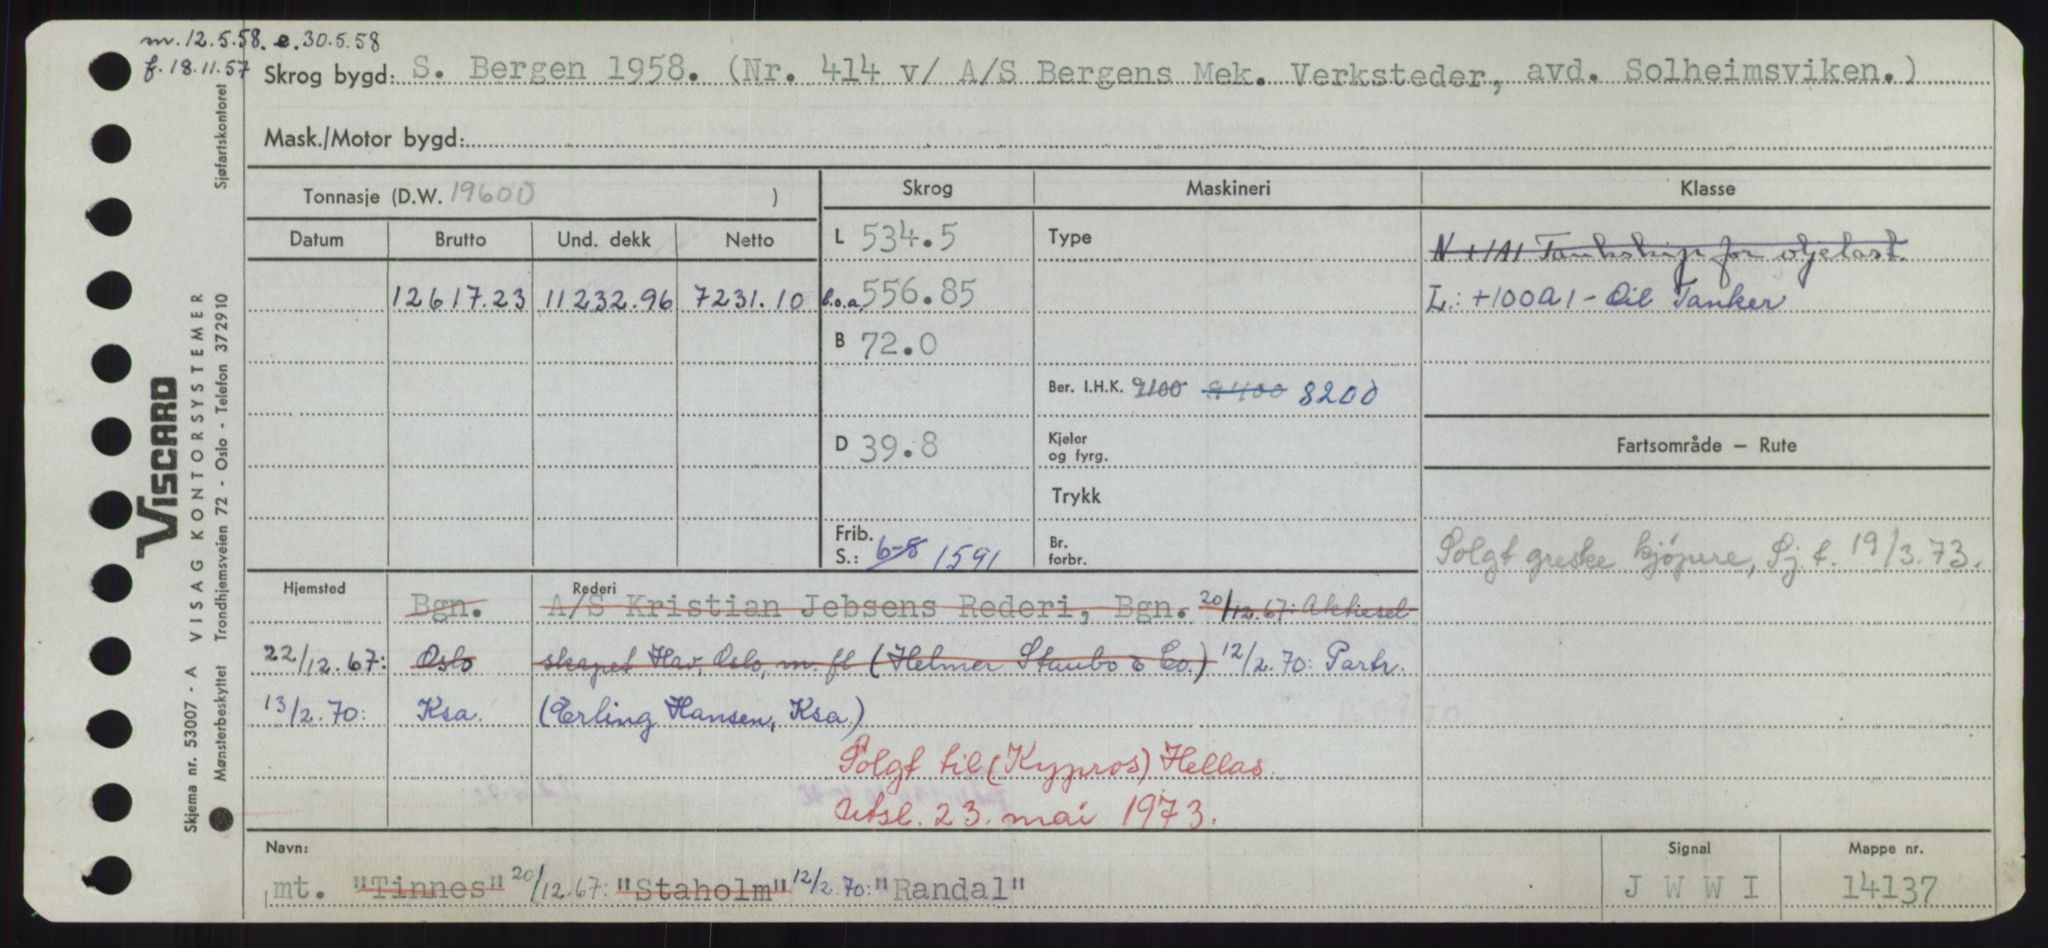 m. 12.5.58. e. 30.5.58
f. 18.11.57
Skrog bygd: S. Bergen 1958. (Nr. 414 v/ A/S Bergens Mek. Verksteder, avd. Solheimsviken.)
Mask./Motor bygd:
Tonnasje (D.W. 19600 )
Skrog
Maskineri
Klasse
Datum Brutto Und. dekk Netto
L 534.5
Type
N +1A1 Tankskip for oljelast.
12617.23 11232.96 7231.10
l.o.a. 556.85
L: +100A1 - Oil Tanker
B 72.0
Ber. I.H.K. 9100 9400 8200
D 39.8
Kjeler
og fyrg.
Fartsområde – Rute
Trykk
Frib.
S.: 6-8 1591
Br.
forbr.
Solgt greske kjøpere, Sj.t. 19/3.73.
Hjemsted
Rederi
Bgn. A/S Kristian Jebsens Rederi, Bgn. 20/12.67: Aktiesel
22/12.67: Oslo skapet Hav, Oslo, m. fl (Helmer Staubo & Co.) 12/2.70: Partr.
13/2.70: Ksa. (Erling Hansen, Ksa.)
Solgt til (Kypros) Hellas.
Utsl. 23. mai 1973.
Navn:
Signal
Mappe nr.
mt. "Tinnes" 20/12.67: "Staholm" 12/2.70: "Randal"
J W W I
14137
VISCARD
Skjema nr. 53007 - A VISAG KONTORSYSTEMER
Mønsterbeskyttet Trondhjemsveien 72 - Oslo - Telefon 372910
Sjøfartskontoret